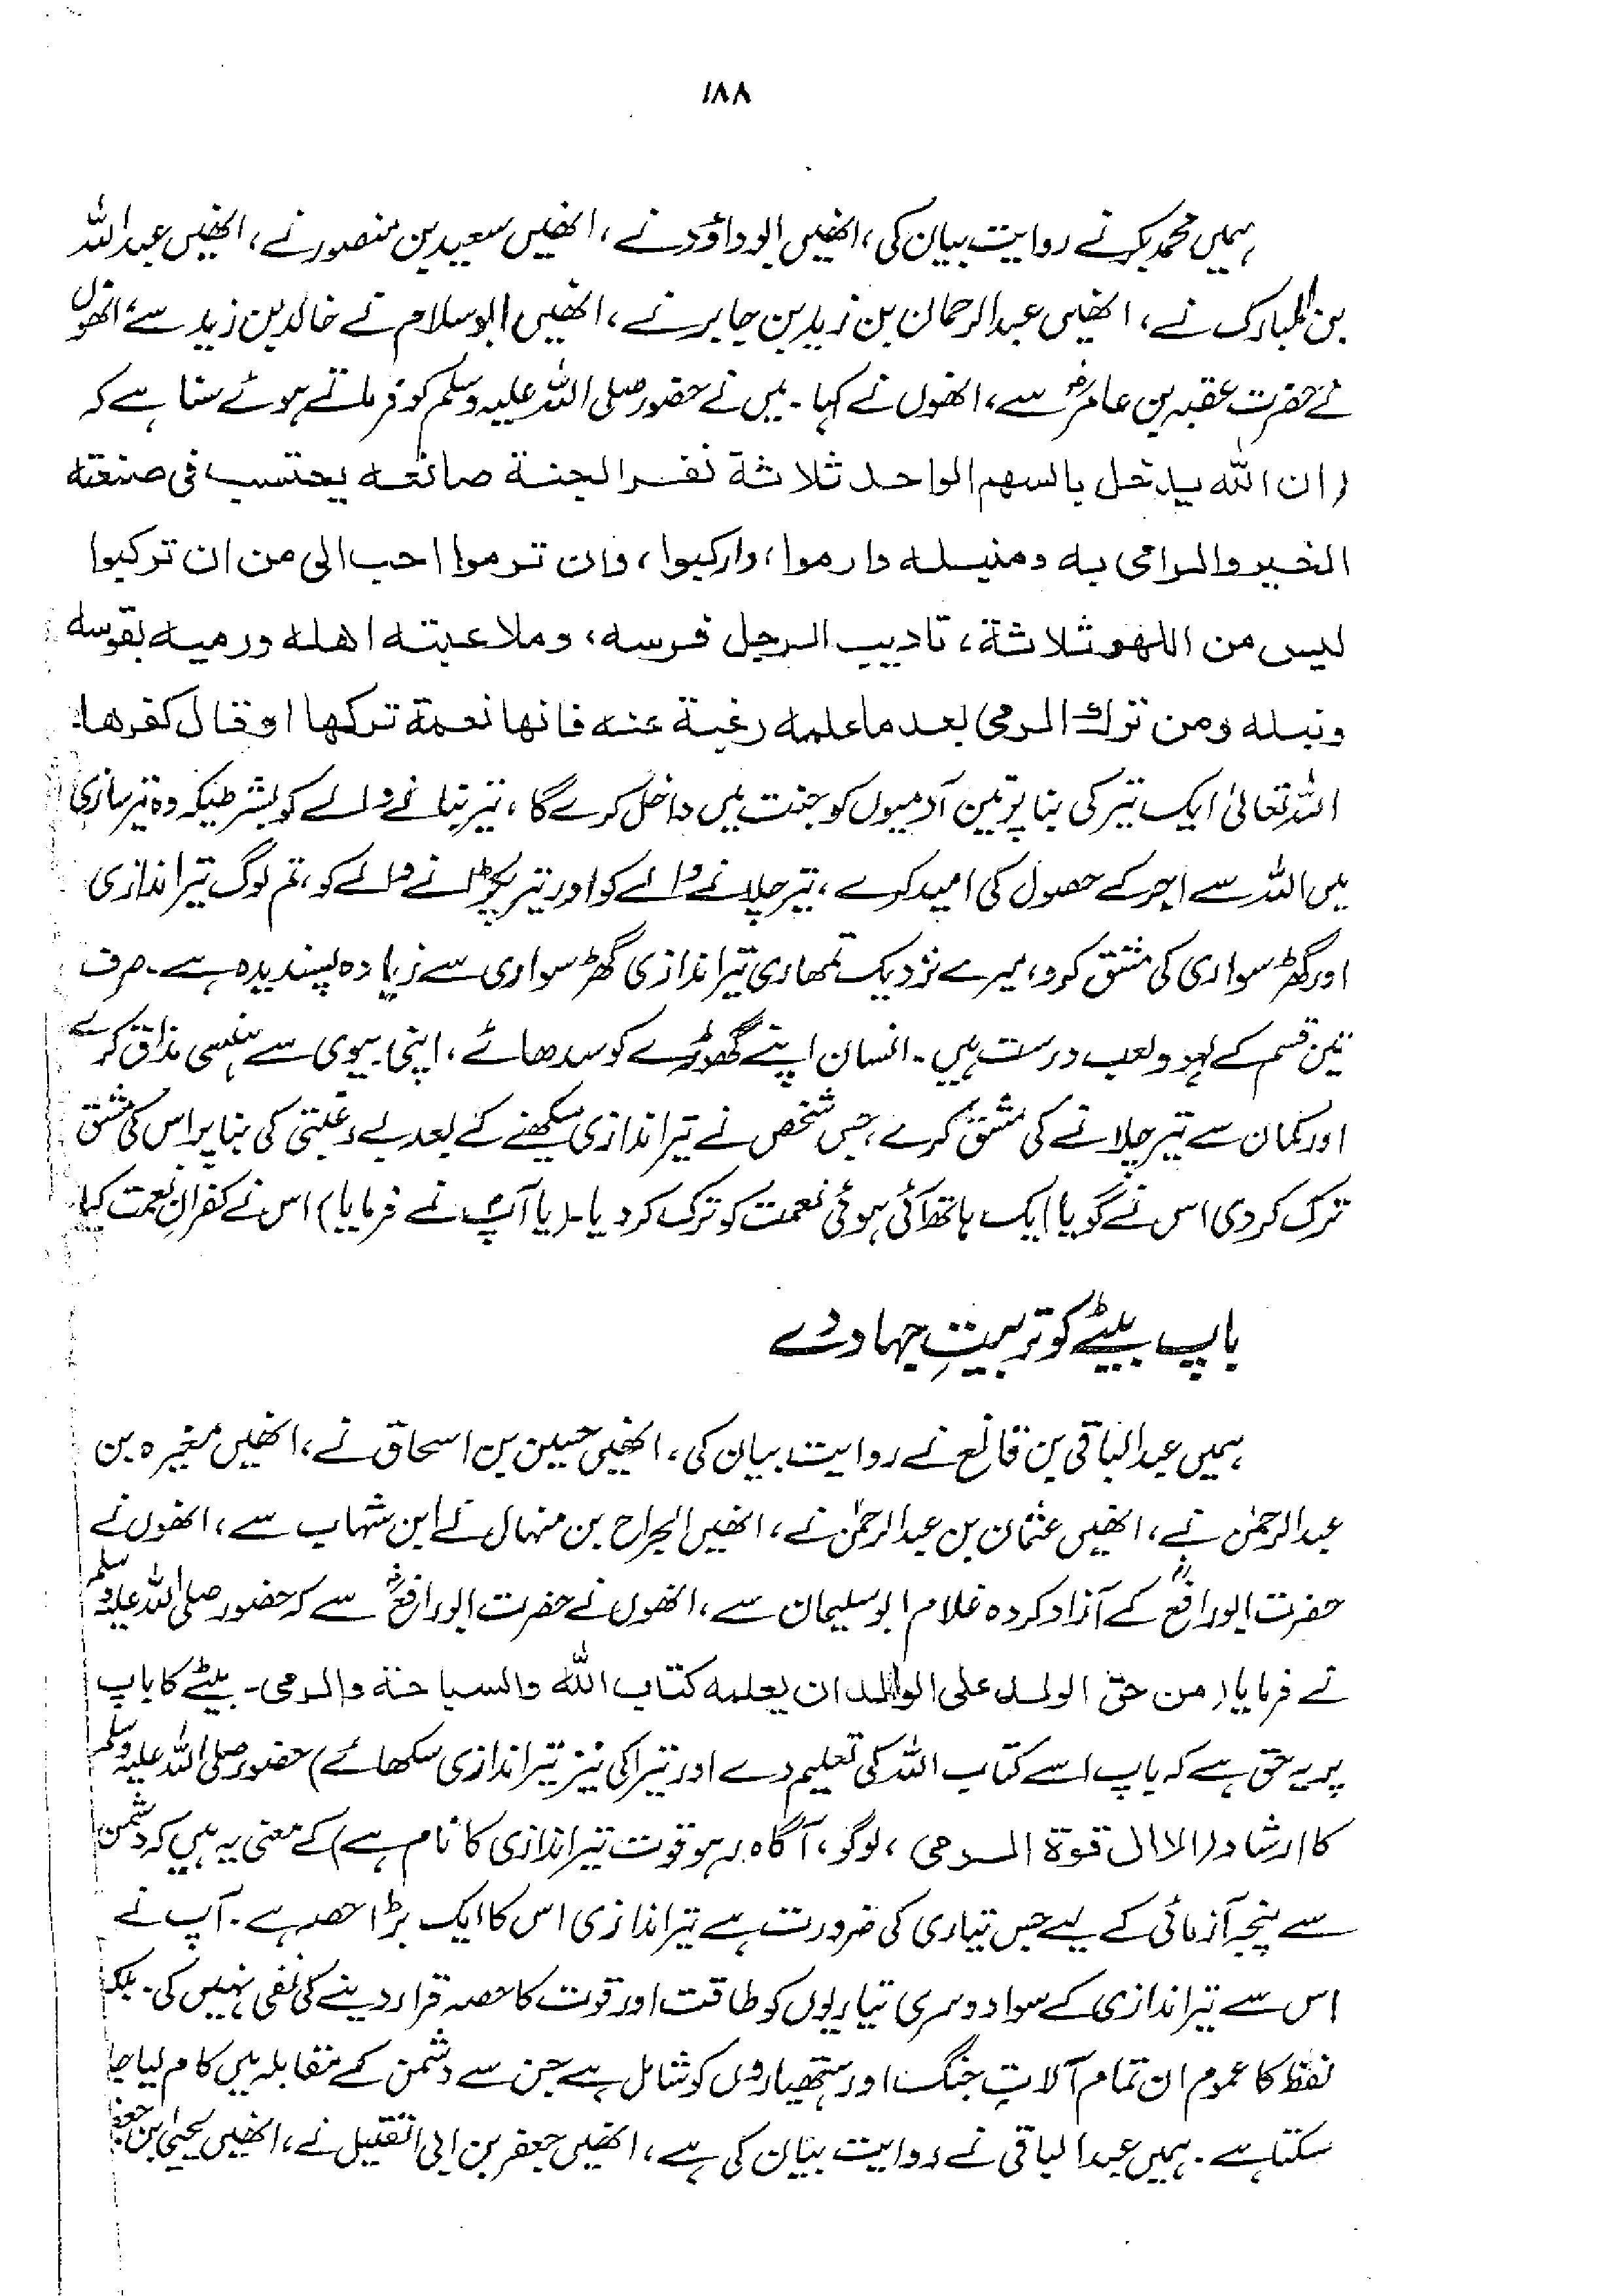 ۱۸۸
ہمیں محمد بکر نے روایت بیان کی، انھیں ابو داؤد نے، انھیں سعید بن منصور نے، انھیں عبد اللہ
بن المبارک نے، انھیں عبدالرحمان بن زید بن جابر نے، انھیں ابو سلام نے خالد بن زید سے، انھوں
نے حضرت عقبہ بن عامرؓ سے، انھوں نے کہا۔ میں نے حضور صلی اللہ علیہ وسلم کو فرماتے ہوئے سنا ہے کہ
(ان اللہ یدخل بالسهم الواحد ثلاثة نفر الجنة صانعه یحتسب فی صنعته
الخیر والرامی به ومنبله وارموا، وارکبوا، وان ترموا احب الی من ان ترکبوا
لیس من اللهو ثلاثة، تادیب الرجل فرسه، وملاعبته اهله ورمیه بقوسه
ونبله ومن ترك الرمی بعد ما علمه رغبة عنه فانها نعمة ترکها او قال کفرها۔
اللہ تعالیٰ ایک تیر کی بنا پر تین آدمیوں کو جنت میں داخل کرے گا، تیر بنانے والے کو بشرطیکہ وہ تیر سازی
میں اللہ سے اجر کے حصول کی امید کرے، تیر چلانے والے کو اور تیر پکڑانے والے کو، تم لوگ تیر اندازی
اور گھڑ سواری کی مشق کرو، میرے نزدیک تمھاری تیر اندازی گھڑ سواری سے زیادہ پسندیدہ ہے۔ صرف
تین قسم کے لہو ولعب درست ہیں۔ انسان اپنے گھوڑے کو سدھائے، اپنی بیوی سے ہنسی مذاق کرے
اور کمان سے تیر چلانے کی مشق کرے، جس شخص نے تیر اندازی سیکھنے کے بعد بے رغبتی کی بنا پر اس کی مشق
ترک کر دی اس نے گویا ایک ہاتھ آئی ہوئی نعمت کو ترک کر دیا۔ (یا آپؐ نے فرمایا) اس نے کفرانِ نعمت کیا
باپ بیٹے کو تربیتِ جہاد دے
ہمیں عبد الباقی بن قانع نے روایت بیان کی، انھیں حسین بن اسحاق نے، انھیں مغیرہ بن
عبدالرحمٰن نے، انھیں عثمان بن عبدالرحمٰن نے، انھیں الجراح بن منہال نے ابن شہاب سے، انھوں نے
حضرت ابو رافعؓ کے آزاد کردہ غلام ابو سلیمان سے، انھوں نے حضرت ابو رافعؓ سے کہ حضور صلی اللہ علیہ وسلم
نے فرمایا (من حق الولد علی الوالد ان یعلمه کتاب اللہ والسباحة والرمی۔ بیٹے کا باپ
پر یہ حق ہے کہ باپ اسے کتاب اللہ کی تعلیم دے اور تیراکی نیز تیر اندازی سکھائے) حضور صلی اللہ علیہ وسلم
کا ارشاد (الا ال قوة الرمی، لوگو، آگاہ رہو قوت تیر اندازی کا نام ہے) کے معنی یہ ہیں کہ دشمن
سے پنجہ آزمائی کے لیے جس تیاری کی ضرورت ہے تیر اندازی اس کا ایک بڑا حصہ ہے۔ آپ نے
اس سے تیر اندازی کے سوا دوسری تیاریوں کو طاقت اور قوت کا حصہ قرار دینے کی نفی نہیں کی۔ بلکہ
لفظ کا عموم ان تمام آلاتِ جنگ اور ہتھیاروں کو شامل ہے جن سے دشمن کے مقابلہ میں کام لیا جا
سکتا ہے۔ ہمیں عبد الباقی نے روایت بیان کی ہے، انھیں جعفر بن ابی القتیل نے، انھیں یحییٰ بن جعفر